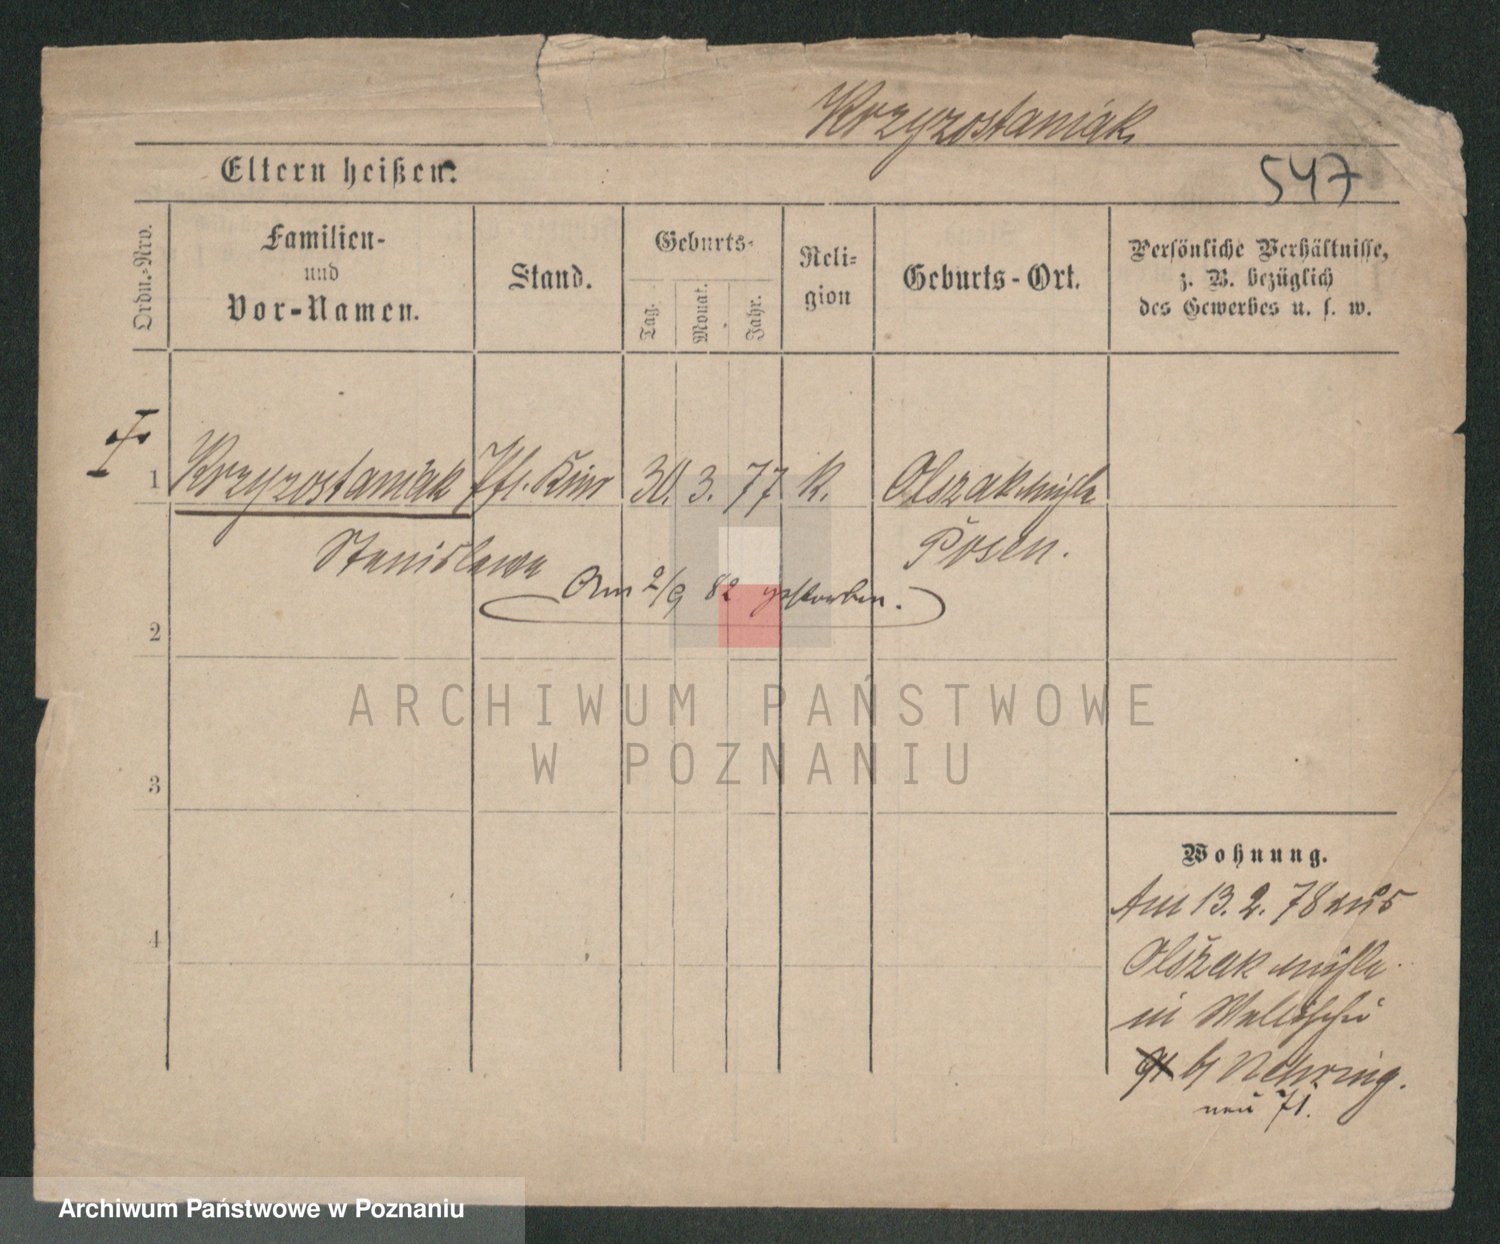 Krzyzostaniak
547
Eltern heißen:
Ordn.-Nro.
Familien-
und
Vor-Namen.
Stand.
Geburts-
Tag.
Monat.
Jahr.
Reli-
gion
Geburts-Ort.
Persönliche Verhältnisse,
z. B. bezüglich
des Gewerbes u. s. w.
1 Krzyzostaniak Pfl. Kind 30. 3. 77 K. Olszakmühle
Stanislawa Posen.
Am 2/9 82 gestorben.
2
3
4
Wohnung.
Am 13. 2. 78 aus
Olszak mühle
in Wallischei
b/ Nehring.
neu 71.
ARCHIWUM PAŃSTWOWE
W POZNANIU
Archiwum Państwowe w Poznaniu